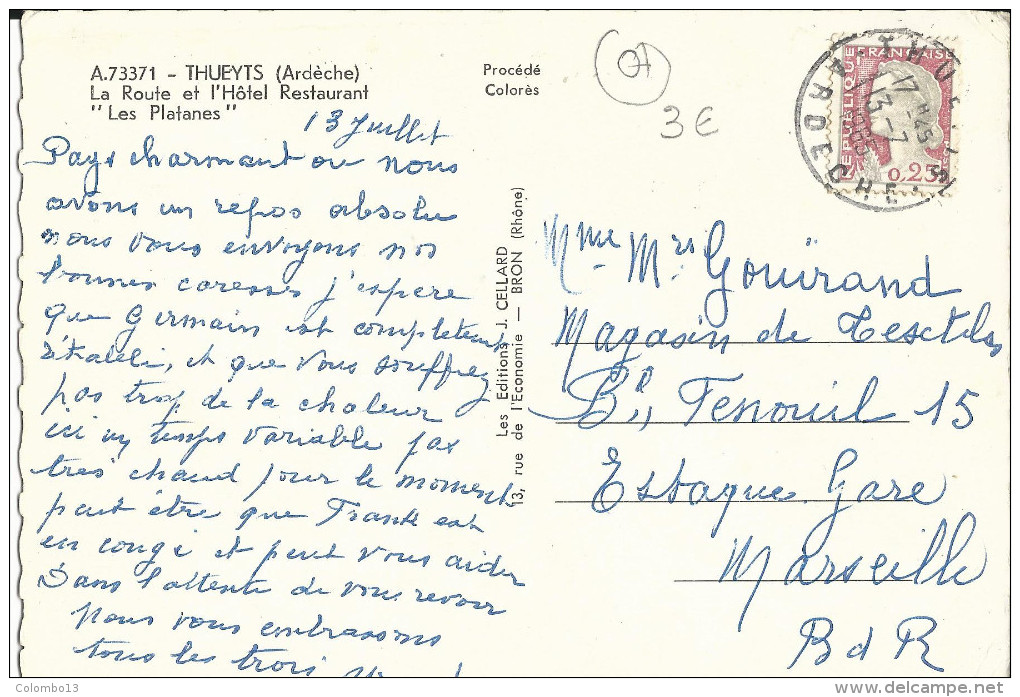 A.73371 - THUEYTS (Ardèche)
La Route et l'Hôtel Restaurant
"Les Platanes"
Procédé
Colorès
07
3€
13 Juillet
Pays charmant ou nous
avons un repos absolu
nous vous envoyons nos
bonnes caresses j'espere
que Germain est
rétabli, et que vous souffrez
pas trop de la chaleur
ici un temps variable pas
tres chaud pour le moment
peut être que Frank est
en congé et peut vous aider
Dans l'attente de vous revoir
Nous vous embrassons
tous les trois
Les Editions J. CELLARD
13, rue de l'Economie — BRON (Rhône)
THUEYTS
ARDECHE
17 H 45
13-7
1965
REPUBLIQUE FRANÇAISE
0,25
Mme Mrs Gouirand
Magasin de
Bd Fenouil 15
Estaque Gare
Marseille
B d R
Colombo13
delcampe.net